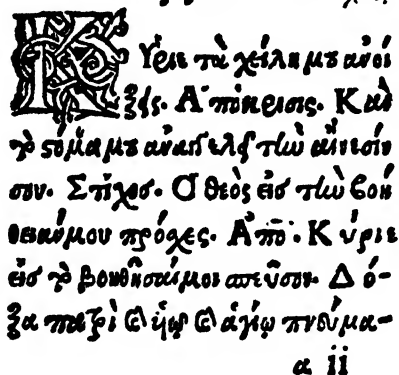 Κύριε τὰ χείλη μου ἀνοί
ξεις. Ἀπόκρισις. Καὶ
τὸ στόμα μου ἀναγγελεῖ τὴν αἴνεσίν
σου. Στίχοσ. Ὁ θεὸς εἰσ τὴν βοή
θειάν μου πρόσχες. Ἀπό. Κύριε
εἰσ τὸ βοηθῆσαί μοι σπεῦσον. Δό-
ξα πατρὶ καὶ ὑιῷ καὶ ἁγίῳ πνεύμα-
a ii